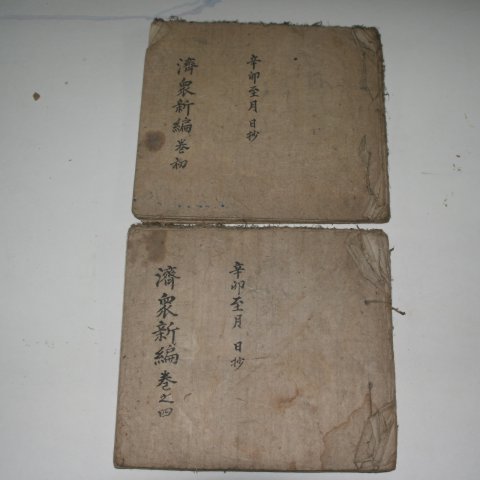 辛卯至月 日抄
濟衆新編 卷初
辛卯至月 日抄
濟衆新編 卷之四